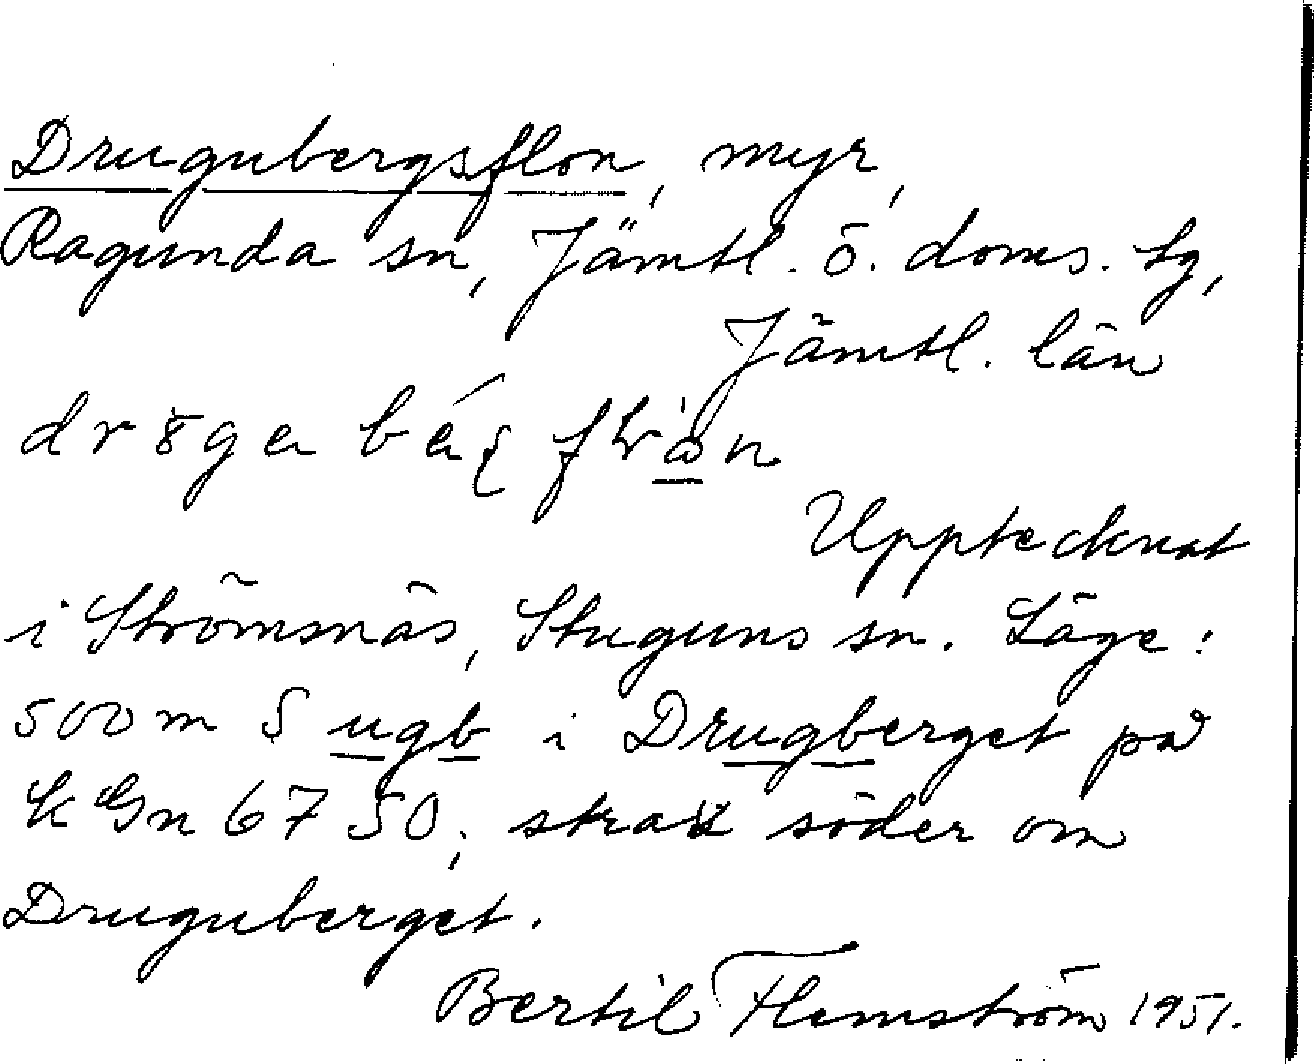 Drugubergsflon, myr,
Ragunda sn, Jämtl. ö. doms. tg,
Jämtl. län
Upptecknat
i Strömsnäs, Stuguns sn. Läge:
500 m S ugb i Drugberget på
kGn 6750; strax söder om
Druguberget.
Bertil Flemström 1951.